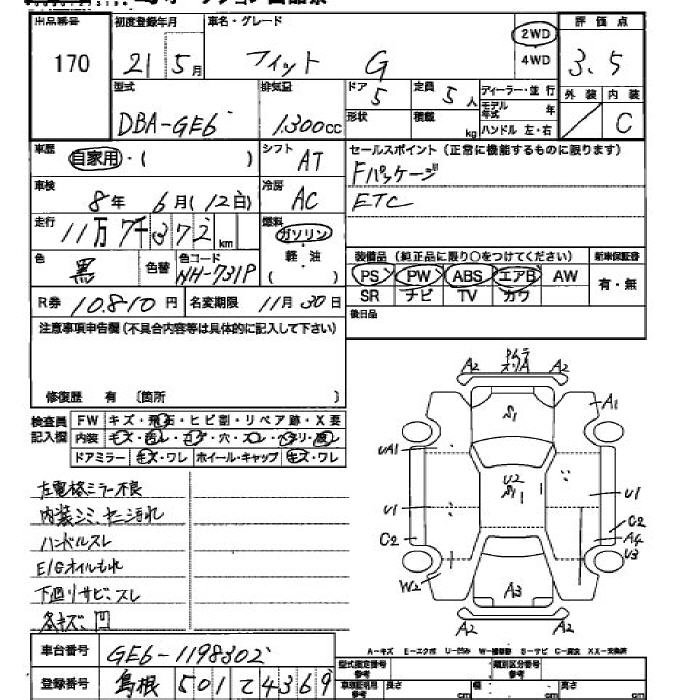 出品番号 初度登録年月 車名・グレード 2WD 4WD 評価点
170 21 5月 フィット G 3.5
型式 排気量 ドア 5 定員 5人 ディーラー・並行 外装 内装
DBA-GE6 1,300cc 形状 積載 kg モデル年式 年 ハンドル 左・右 C
車歴 自家用・( ) シフト AT セールスポイント(正常に機能するものに限ります)
車検 8年 6月(12日) 冷房 AC Fパッケージ
ETC
走行 11万7千372km 燃料 ガソリン 軽油 ( )
色 黒 色替 色コード NH-731P
装備品(純正品に限り○をつけてください) 新車保証書
PS PW ABS エアB AW 有・無
SR ナビ TV カワ
R券 10,810円 名変期限 11月30日 後日品
注意事項申告欄(不具合内容等は具体的に記入して下さい)
修復歴 有 〔箇所 〕
検査員記入欄 FW キズ・飛石・ヒビ割・リペア跡・X要
内装 キズ・・コゲ・穴・スレ・・
ドアミラー キズ・ワレ ホイール・キャップ キズ・ワレ
左電格ミラー不良
内装シミ、ヤニ汚れ
ハンドルスレ
E/Gオイルもれ
下廻りサビ、スレ
各キズ、凹
A2 A2
S1 A1
UA1 U2 S1
U1 U1
C2 C2 A4
U3
W2 A3
A2 A2
A-キズ E-エクボ U-凹み W-補修跡 S-サビ C-腐食 XX-交換済
車台番号 GE6-1198302
登録番号 島根 501 て 4369
型式指定番号 参考 類別区分番号 参考
長さ cm 幅 cm 高さ cm